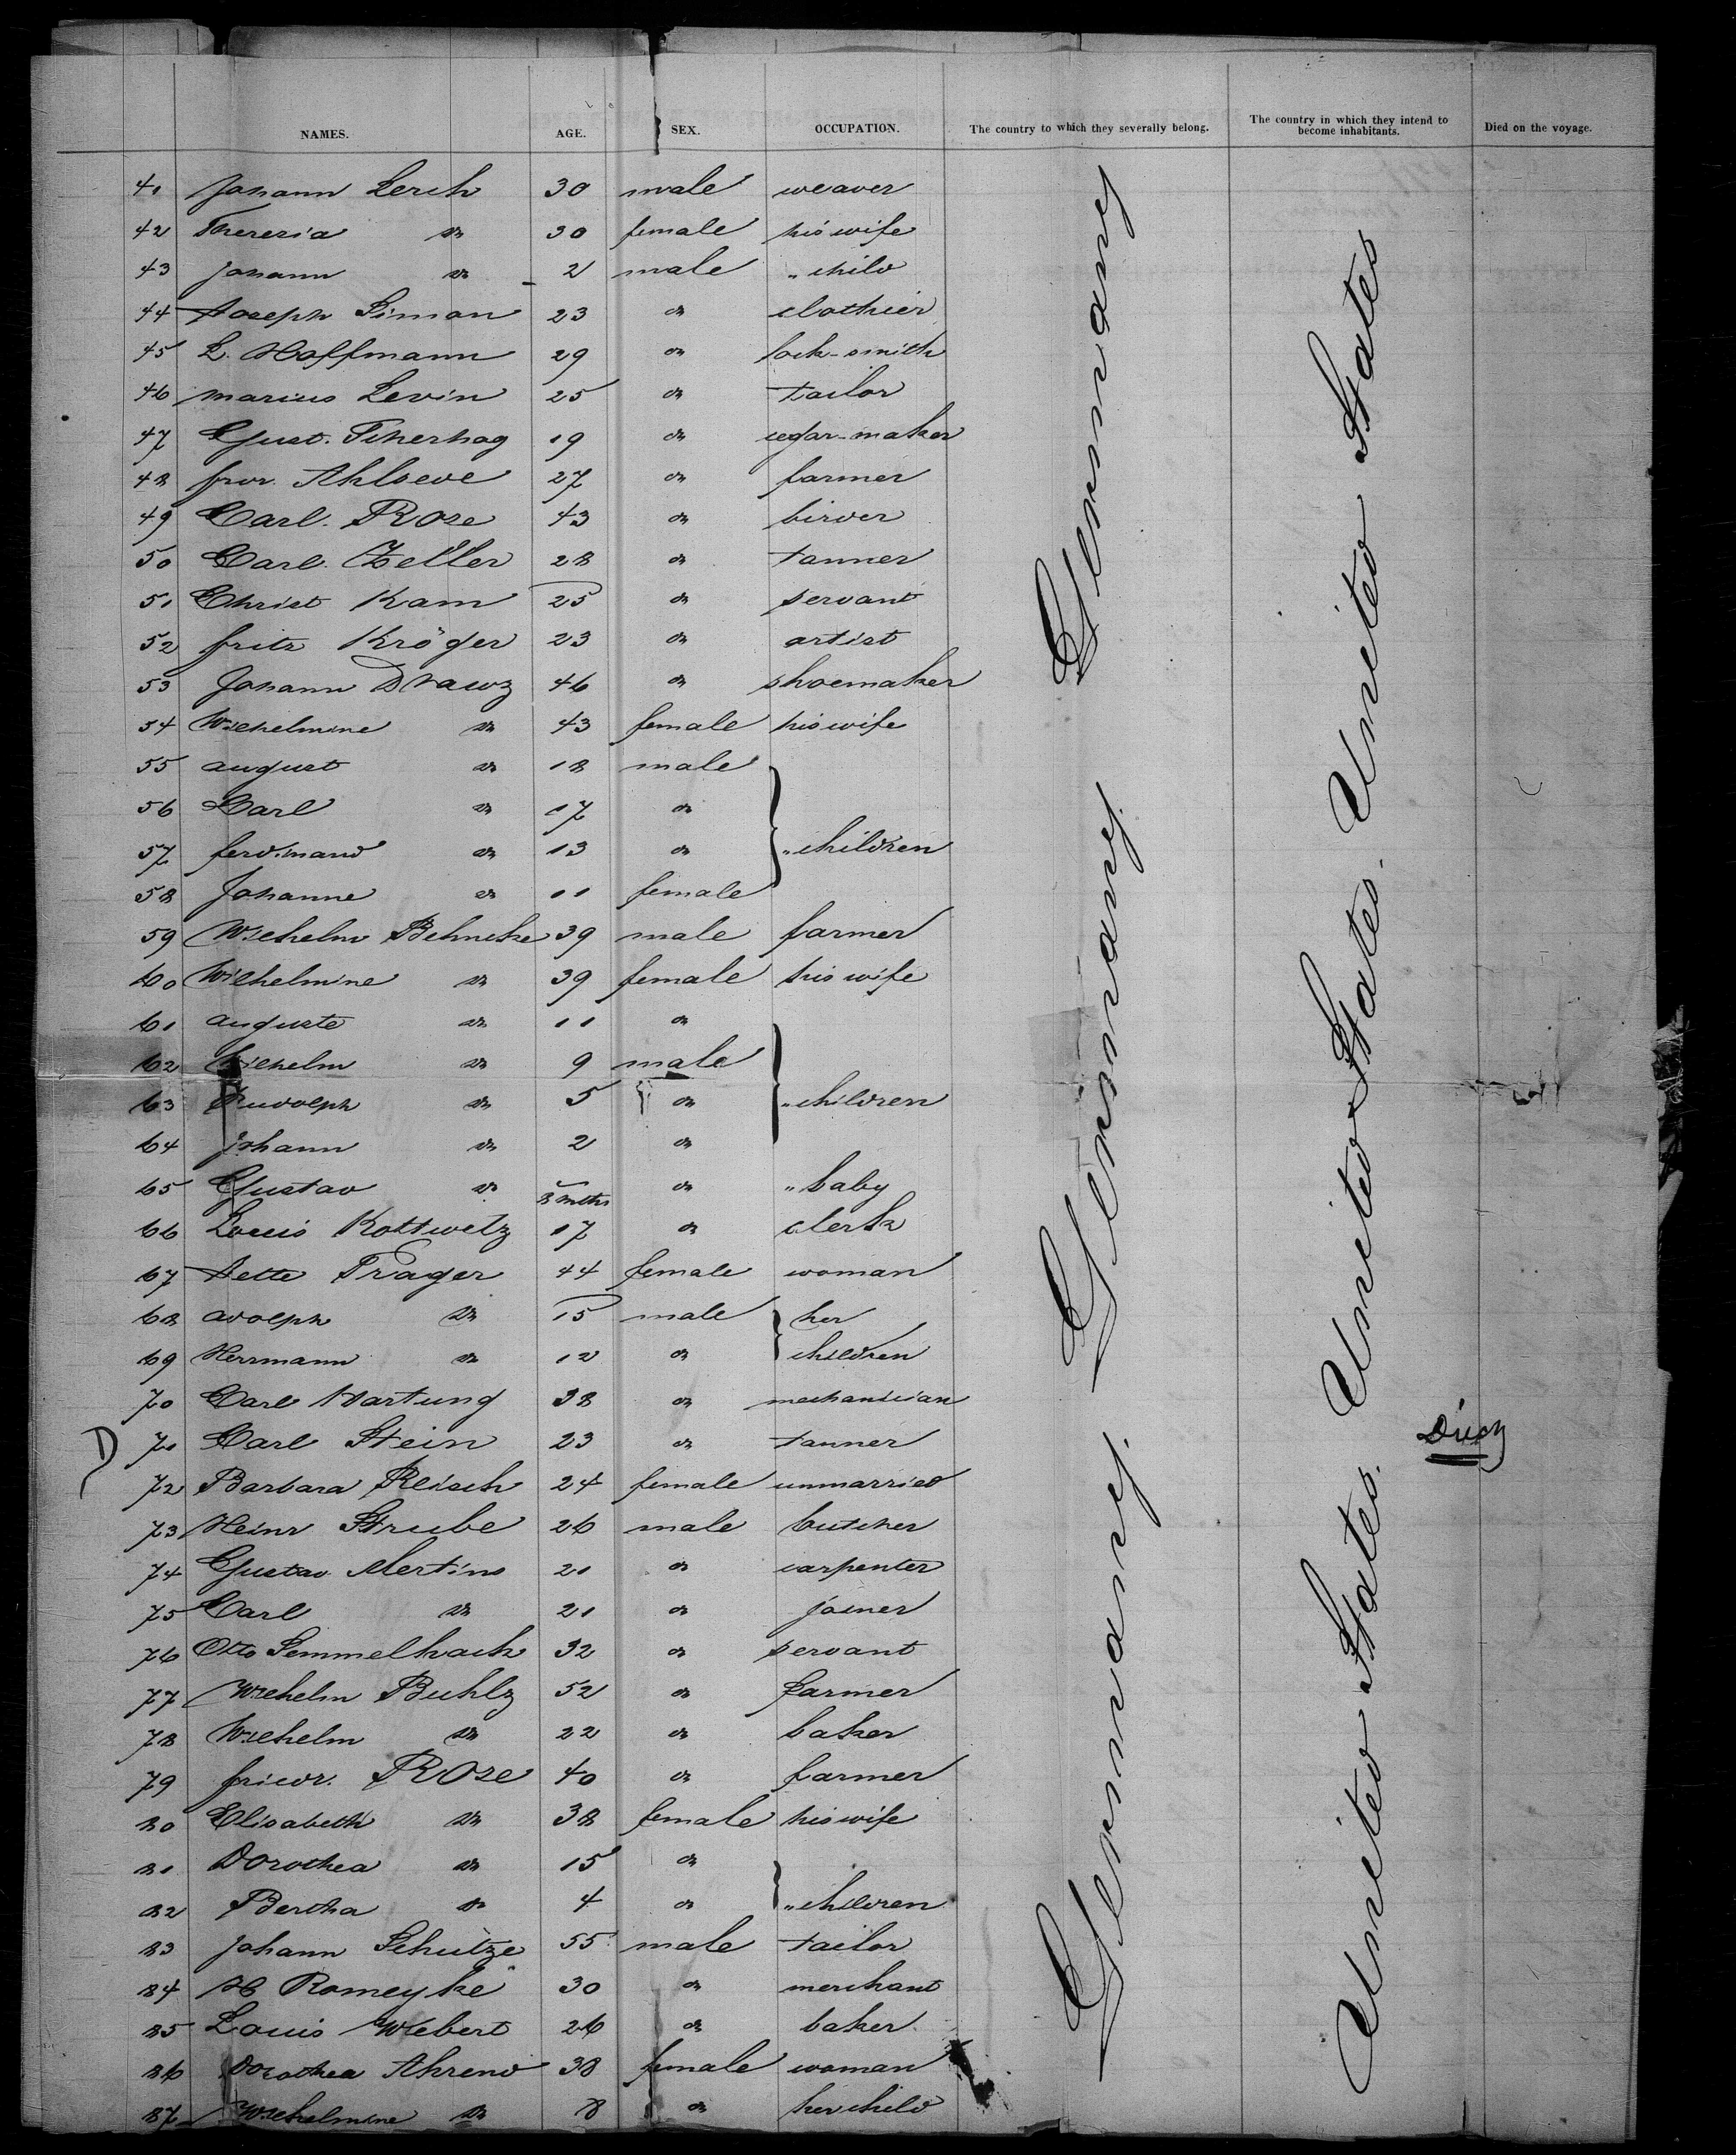 NAMES. AGE. SEX. OCCUPATION. The country to which they severally belong. The country in which they intend to become inhabitants. Died on the voyage.
41 Johann Lerch 30 male weaver
42 Theresia do 30 female his wife
43 Johann do 2 male " child
44 Joseph Simon 23 do clothier
45 L. Hoffmann 29 do lock-smith
46 Marius Levin 25 do tailor
47 Gust. 19 do segar-maker
48 27 do farmer
49 Carl. Rose 43 do binder
50 Carl. Zeller 28 do tanner
51 Christ Kam 25 do servant
52 Fritz Kröger 23 do artist
53 Johann Drawz 46 do shoemaker
54 Wilhelmine do 43 female his wife
55 August do 18 male
56 Carl do 17 do
57 Ferdinand do 13 do " children
58 Johanne do 11 female
59 Wilhelm Behncke 39 male farmer
60 Wilhelmine do 39 female his wife
61 Auguste do 11 do
62 Wilhelm do 9 male
63 Rudolph do 5 do " children
64 Johann do 2 do
65 Gustav do 8 mths do " baby
66 Louis Kottwitz 17 do clerk
67 Prager 44 female woman
68 Adolph do 15 male her
69 Herrmann do 12 do children
70 Carl Hartung 38 do mechanician
D 71 Carl Stein 23 do tanner
72 Barbara 24 female unmarried
73 Heinr Strube 26 male butcher
74 Gustav Mertins 21 do carpenter
75 Carl do 21 do joiner
76 Otto Semmelhack 32 do servant
77 Wilhelm Buhlz 52 do farmer
78 Wilhelm do 22 do baker
79 Friedr. Rose 40 do farmer
80 Elisabeth do 38 female his wife
81 Dorothea do 15 do
82 Bertha do 4 do " children
83 Johann Schütze 55 male tailor
84 H Romeyke 30 do merchant
85 Louis Wiebert 26 do baker
86 Dorothea Ahrend 38 female woman
87 Wilhelmine do 8 do her child
Germany
Germany.
Germany.
United States
United States.
United States.